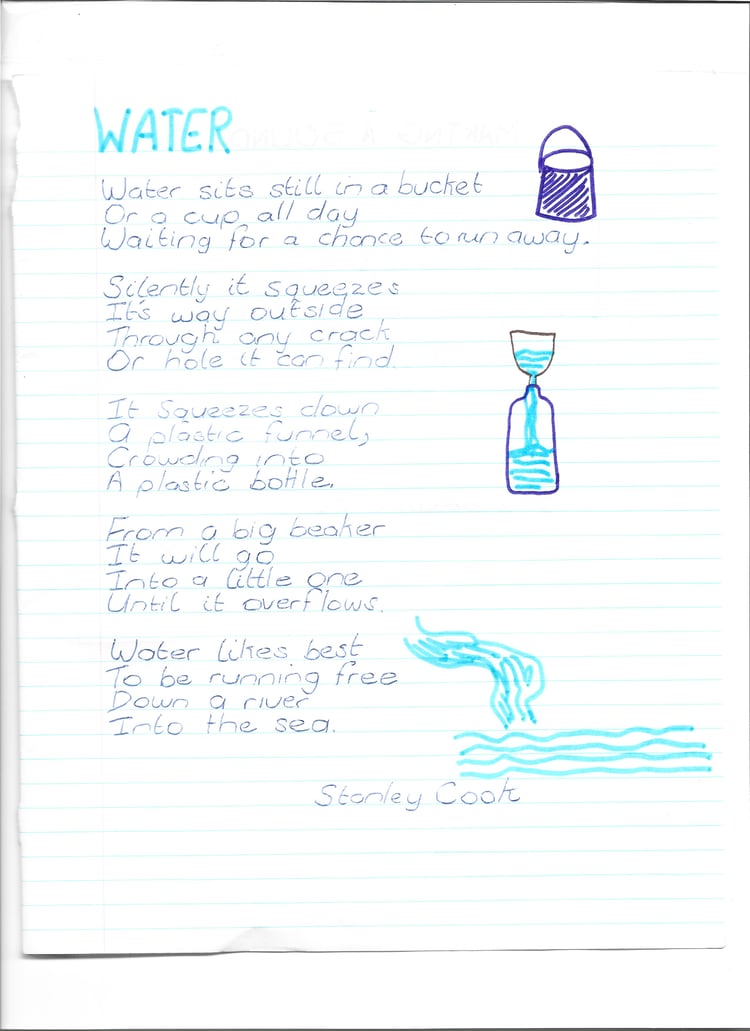 WATER
Water sits still in a bucket
Or a cup all day
Waiting for a chance to run away.
Silently it squeezes
It's way outside
Through any crack
Or hole it can find.
It squeezes down
A plastic funnel,
Crowding into
A plastic bottle.
From a big beaker
It will go
Into a little one
Until it overflows.
Water likes best
To be running free
Down a river
Into the sea.
Stanley Cook